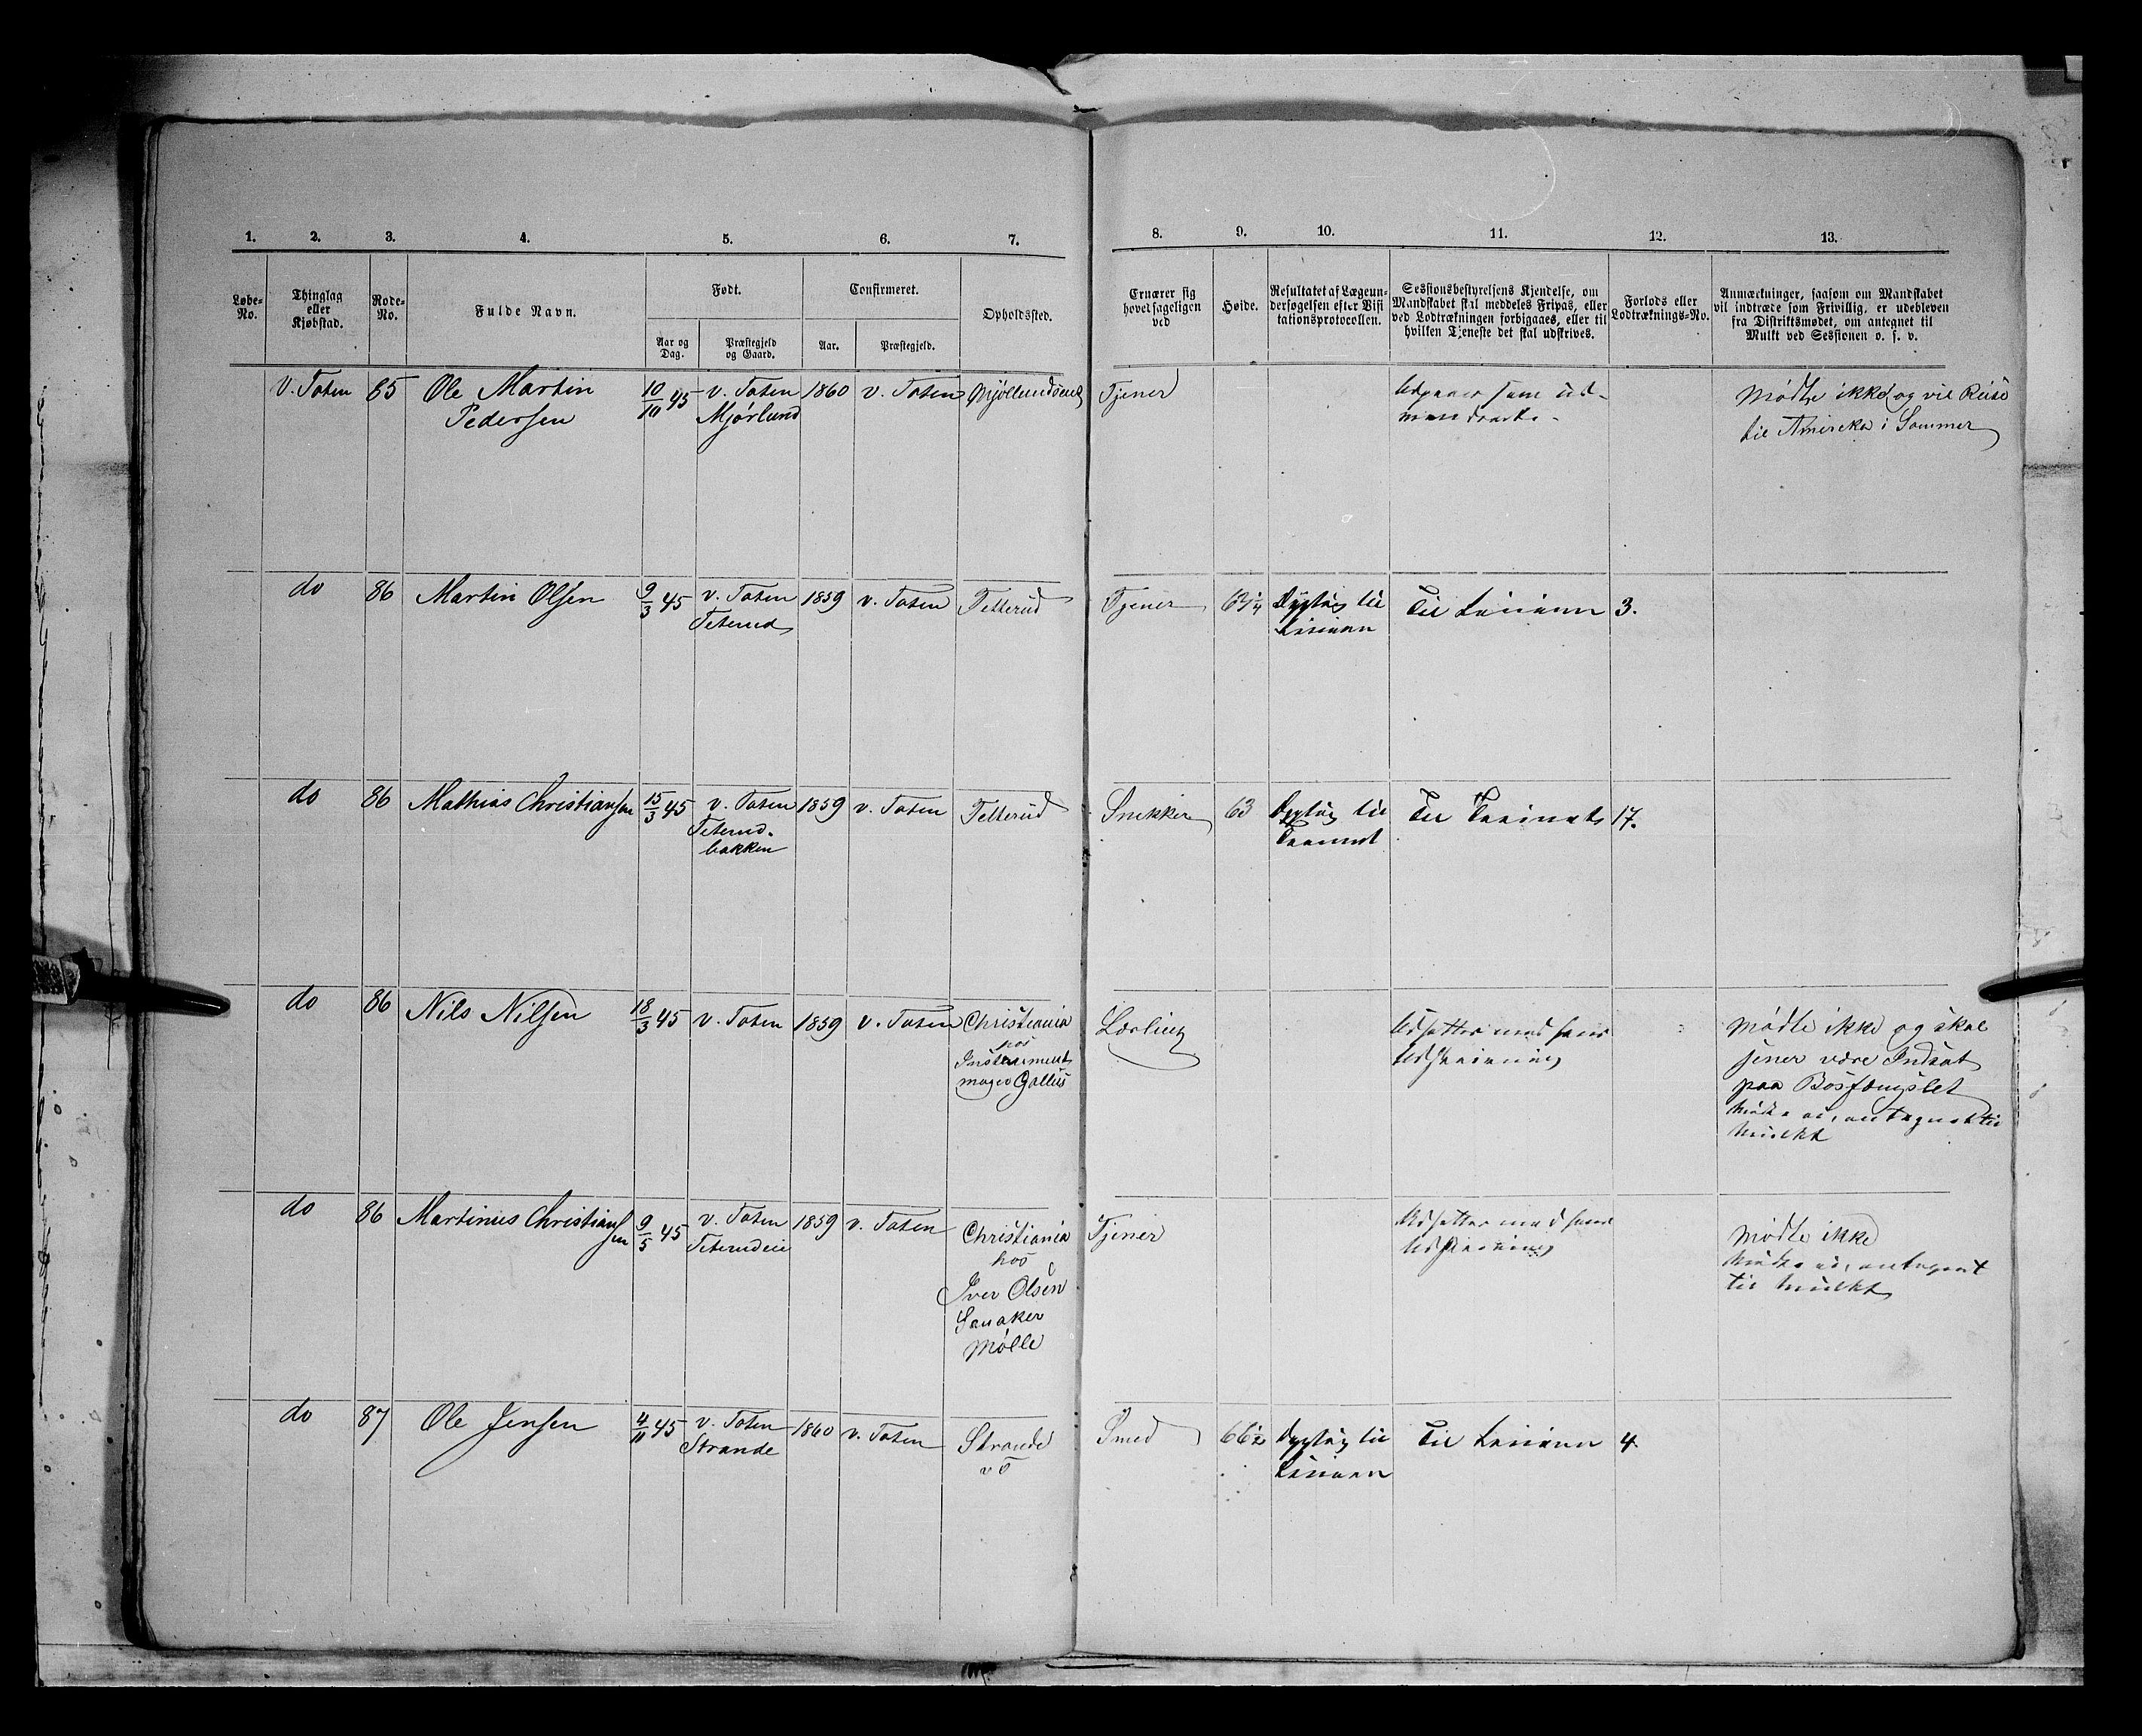 1. 2. 3. 4. 5. 6. 7. 8. 9. 10. 11. 12. 13.
Løbe-No.
Thinglag eller Kjøbstad.
Rode-No.
Fulde Navn.
Født.
Aar og Dag.
Præstegjeld og Gaard.
Confirmeret.
Aar.
Præstegjeld.
Opholdssted.
Ernærer sig hovedsageligen ved
Høide.
Resultatet af Lægeundersøgelsen efter Visitationsprotocollen.
Sessionsbestyrelsens Kjendelse, om Mandskabet skal meddeles Fripas, eller ved Lodtrækningen forbigaaes, eller til hvilken Tjeneste det skal udskrives.
Forlods eller Lodtræknings-No.
Anmærkninger, saasom om Mandskabet vil indtræde som Frivillig, er udebleven fra Distriktsmødet, om antegnet til Mulkt ved Sessionen o. s. v.
V. Toten 85 Ole Martin Pedersen 10/10 45 V. Toten Mjørlund 1860 V. Toten Tjener
Udgaaer som ud-
Mødte ikke og vil Reise
til Amireka i Sommer
do 86 Martin Olsen 9/3 45 V. Toten Teterud 1859 V. Toten Tetterud Tjener 64 1/4 Dygtig til Linieen Til Linieen 3.
do 86 Mathias Christiansen 15/3 45 V. Toten Teterud-bakken 1859 V. Toten Tetterud Snekker 63 Dygtig til Trainet Til Trainet 17.
do 86 Nils Nilsen 18/3 45 V. Toten 1859 V. Toten Christiania
hos
Instrument
mager Gallus
Lærling
Udsættes med hans
Udskrivning
Mødte ikke og skal
siner være Indsat
paa Bosfængslet
Mødte ei, antegnet til
Mulkt
do 86 Martinus Christiansen 9/5 45 V. Toten Teterudeie 1859 V. Toten Christiania
hos
Iver Olsen
Sanaker
Mølle
Tjener
Udsættes med hans
Udskrivning
Mødte ikke
Mødte ei, antegnet
til Mulkt
do 87 Ole Jensen 4/11 45 V. Toten Strande 1860 V. Toten Strande Smed 66 1/2 Dygtig til Linieen Til Linieen 4.